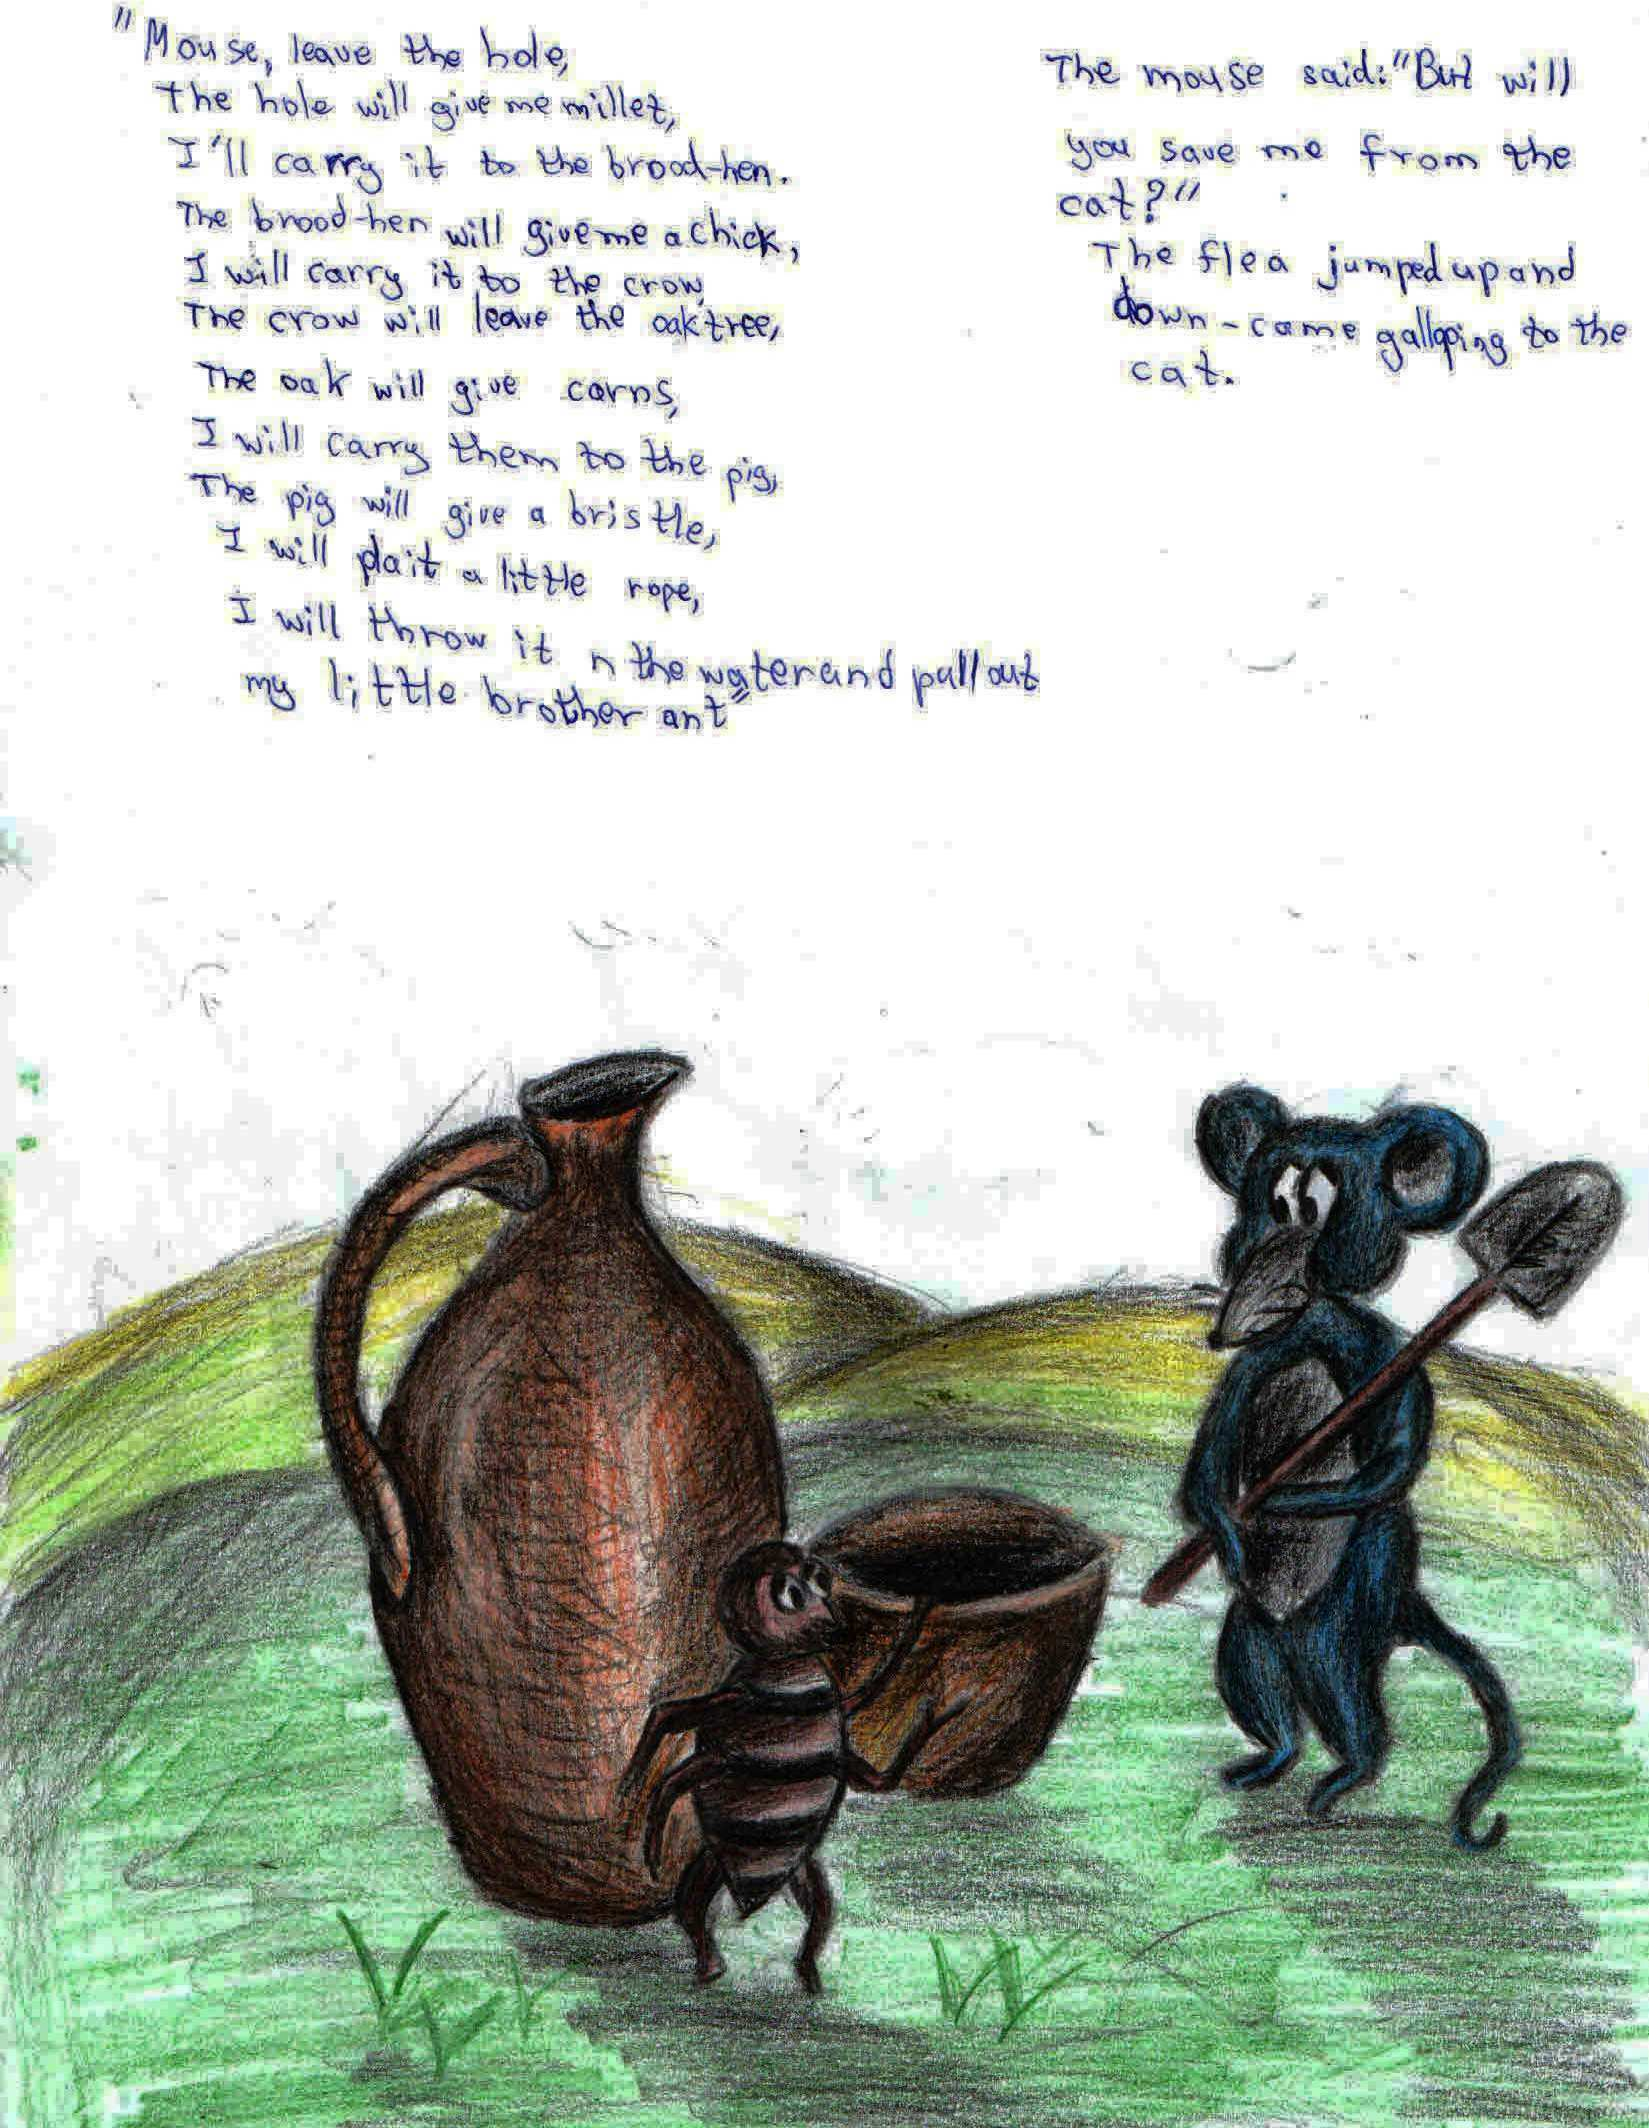 "Mouse, leave the hole,
The hole will give me millet,
I'll carry it to the brood-hen.
The brood-hen will give me a chick,
I will carry it to the crow
The crow will leave the oak tree,
The oak will give corns,
I will carry them to the pig,
The pig will give a bristle,
I will plait a little rope,
I will throw it n the water and pull out
my little brother ant"
The mouse said: "But will
you save me from the
cat?"
The flea jumped up and
down - came galloping to the
cat.